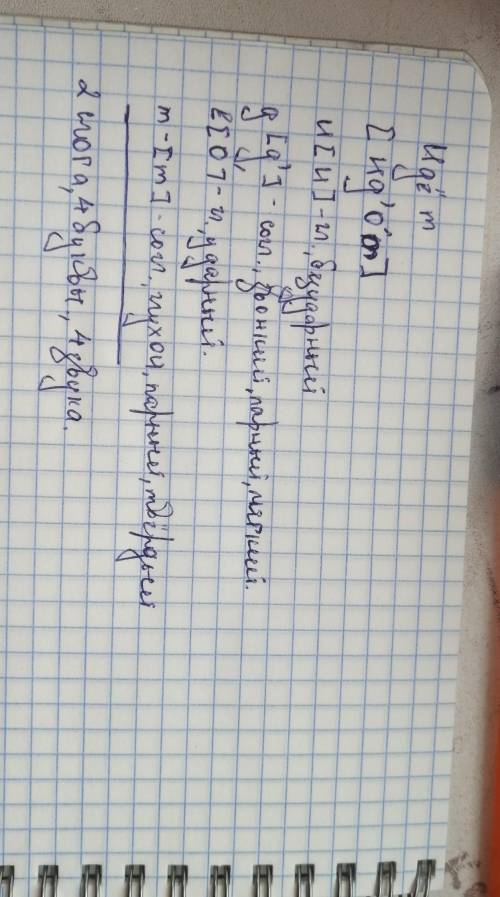 Идёт
[ид'о́т]
и[и]-гл., безударный
д[д']-согл., звонкий, парный, мягкий.
ё[о]-гл., ударный.
т-[т]-согл., глухой, парный, твёрдый
2 слога, 4 буквы, 4 звука.